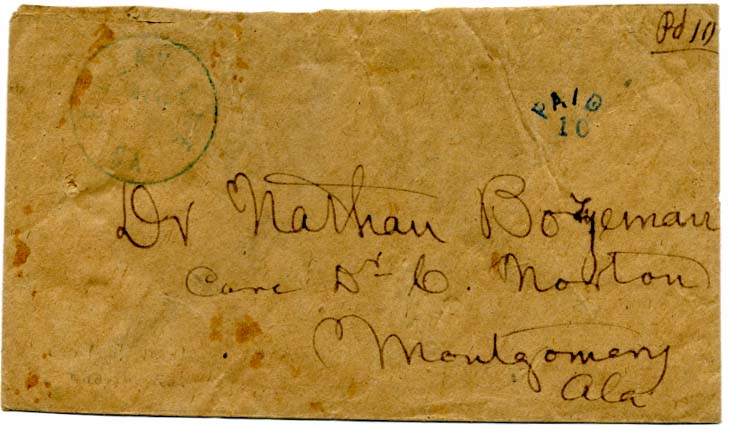 Pd 10
PAID
10
Dr Nathan Bozeman
Care Dr C. Norton
Montgomery
Ala